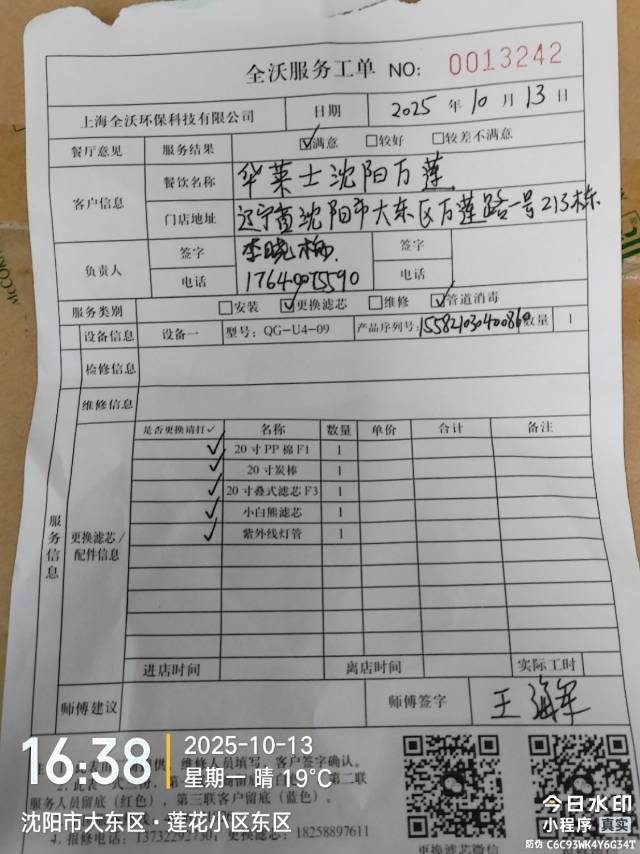 全沃服务工单 NO: 0013242
上海全沃环保科技有限公司 日期 2025 年 10 月 13 日
餐厅意见 服务结果 ☑满意 □较好 □较差不满意
客户信息 餐饮名称 华莱士沈阳万莲
门店地址 辽宁省沈阳市大东区万莲路一号213栋
负责人 签字 李晓梅 签字
电话 电话
服务类别 □安装 ☑更换滤芯 □维修 ☑管道消毒
设备信息 设备一 型号: QG-U4-09 产品序列号: 数量 1
检修信息
维修信息
服务信息
更换滤芯/配件信息
是否更换请打✓ 名称 数量 单价 合计 备注
✓ 20寸PP棉F1 1
✓ 20寸炭棒 1
✓ 20寸叠式滤芯F3 1
✓ 小白熊滤芯 1
✓ 紫外线灯管 1
进店时间 离店时间 实际工时
师傅建议 师傅签字 王海军
维修人员填写,客户签字确认。
第二联
服务人员留底(红色),第三联客户留底(蓝色)。
18258897611
更换滤芯微信
16:38
2025-10-13
星期一 晴 19℃
沈阳市大东区·莲花小区东区
今日水印
小程序 真实
防伪 C6C93WK4Y6G34T